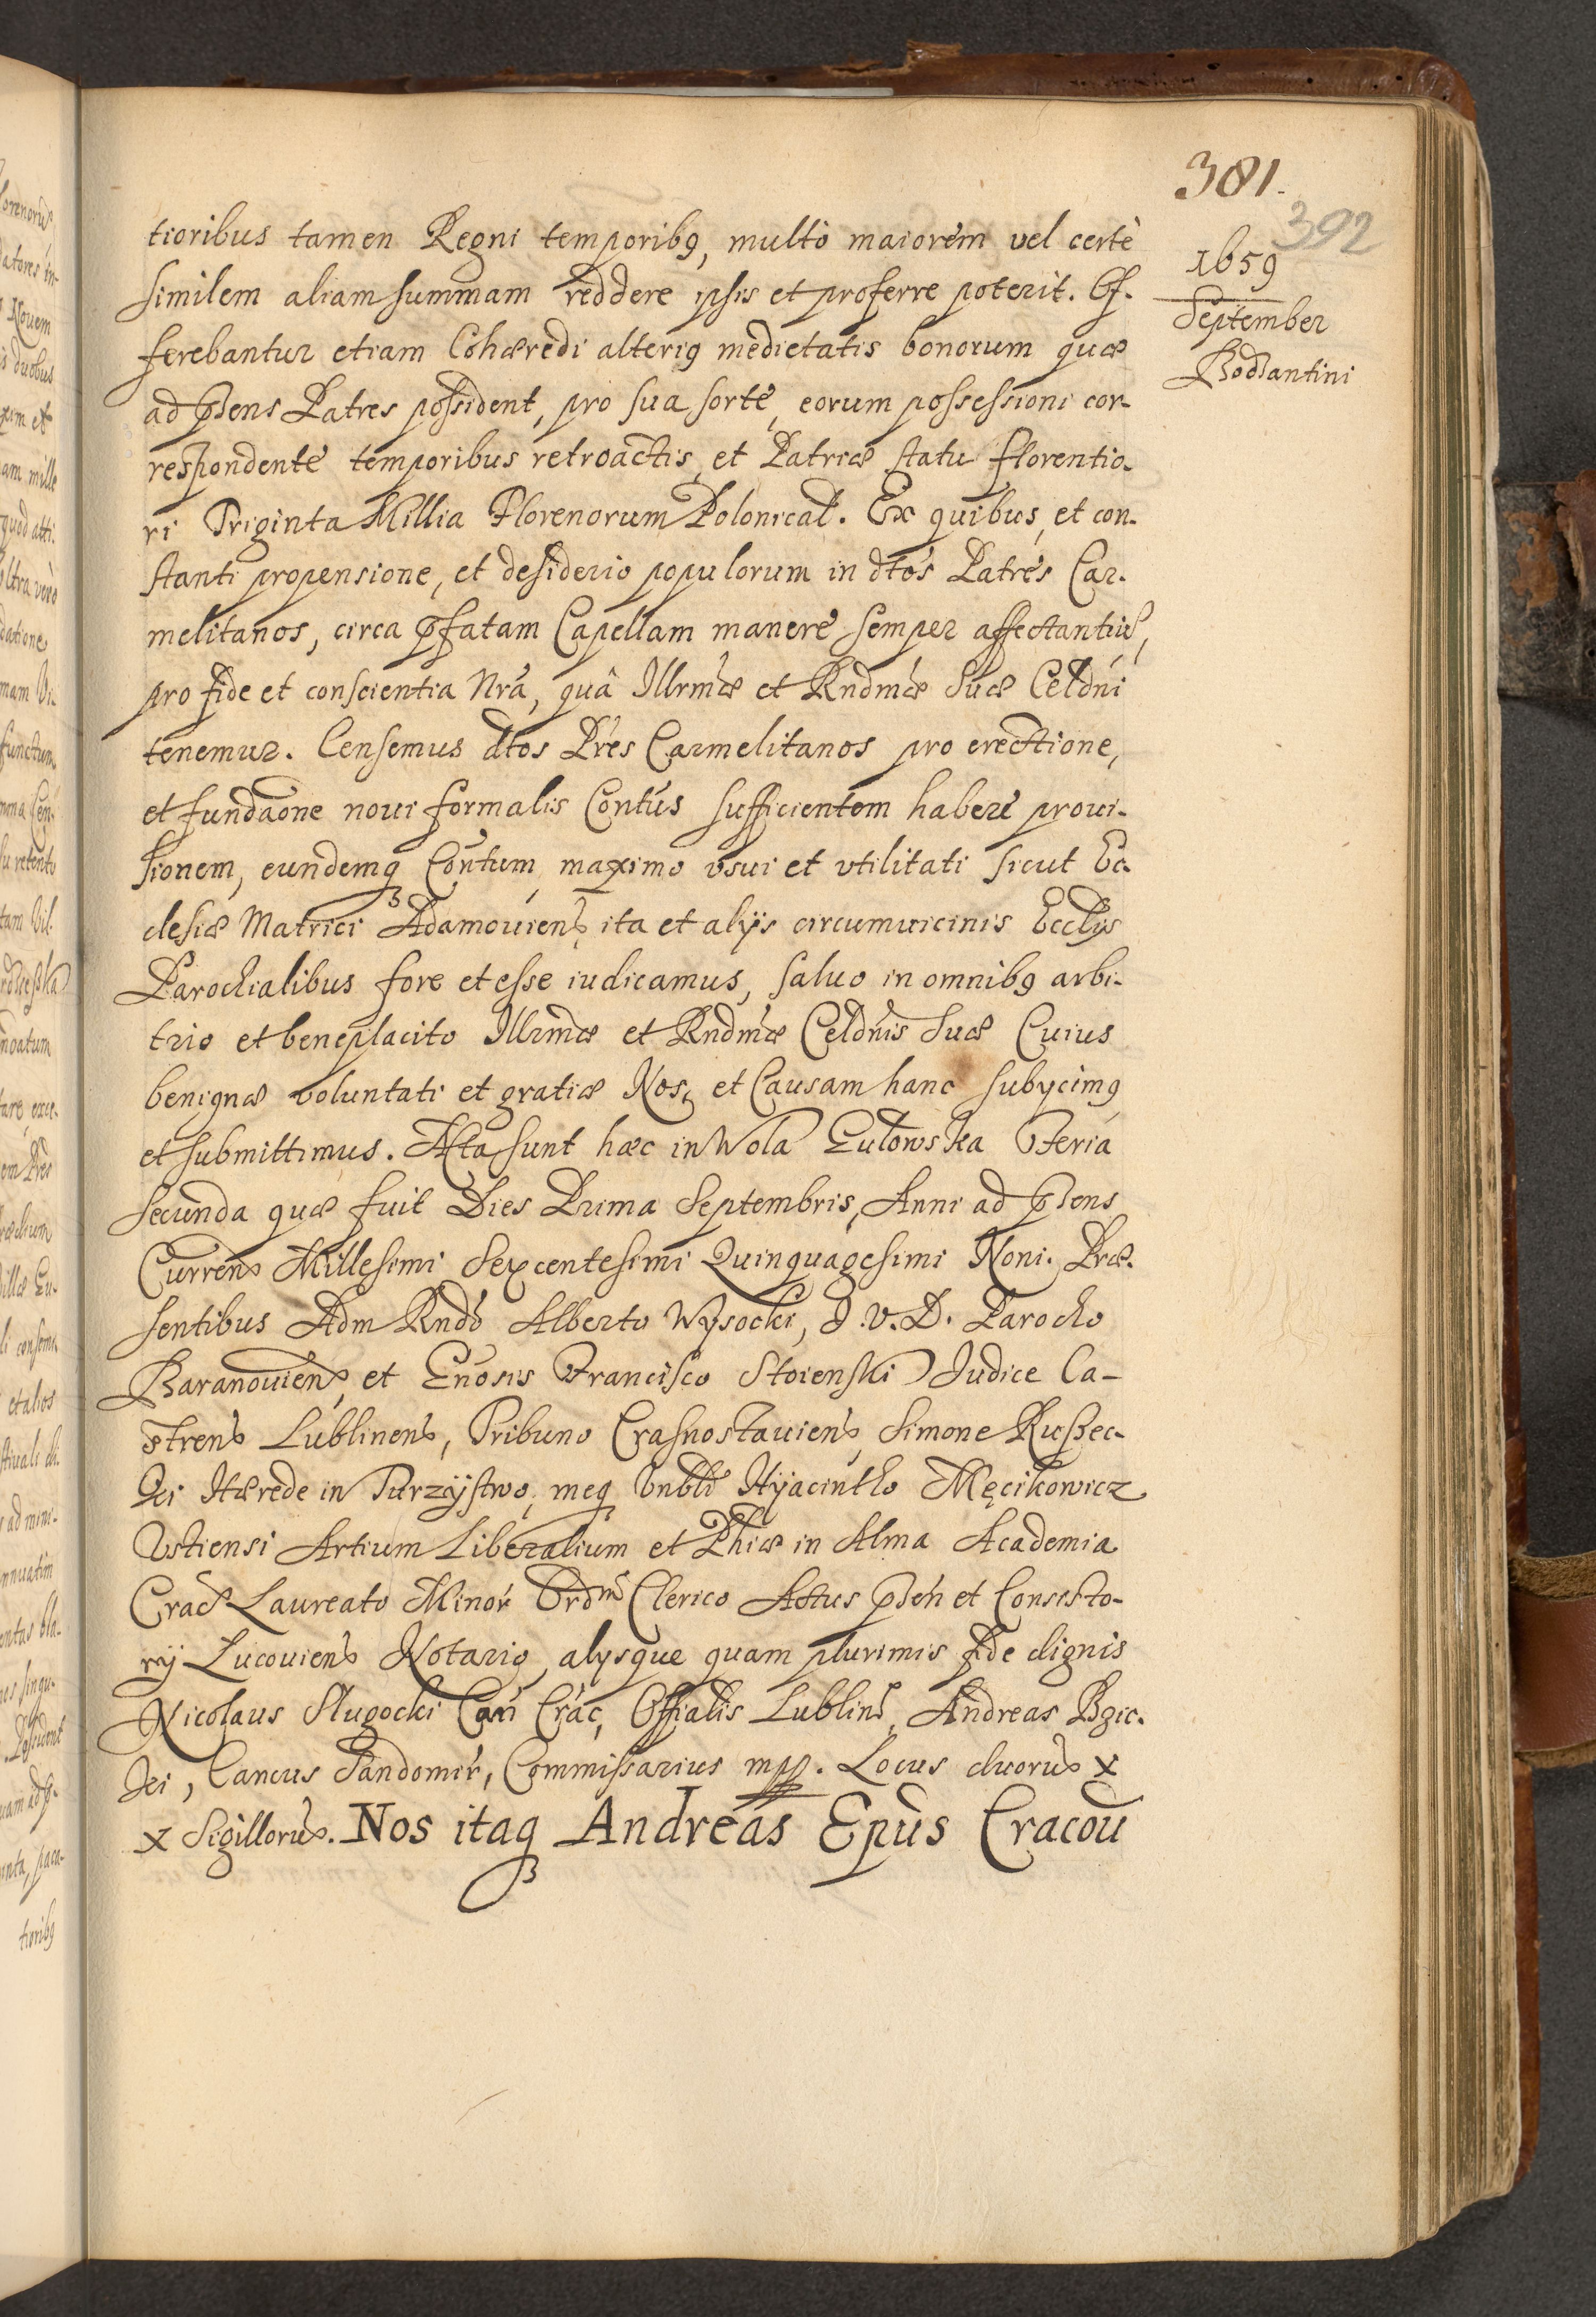 381.
392
1659
September
Bodzantini
tioribus tamen Regni temporibq, multò maiorem vel certè
similem aliam summam reddere ipsis et proferre poterit. Of-
ferebantur etiam Cohæredi alteriq medietatis bonorum quæ
ad pñsens Patres possident, pro sua sorte, eorum possessioni cor-
respondente temporibus retroactis, et Patriæ statu florentio-
ri Triginta Millia Florenorum Polonical. Ex quibus, et con-
stanti propensione, et desiderio populorum in dtos Patres Car-
melitanos, circa pfatam Capellam manere semper affectantiu,
pro fide et conscientia Nrâ, quâ Illrmæ et Rndmæ Suæ Celdni
tenemur. Censemus dtos Pres Carmelitanos pro erectione,
et fundaone noui formalis Contus sufficientem habere proui-
sionem, eundemq Contum, maximo vsui et vtilitati sicut Ec-
clesiæ Matrici Adamouiens, ita et alijs circumuicinis Ecclijs
Parochialibus fore et esse iudicamus, saluo in omnibq arbi-
trio et beneplacito Illrmæ et Rndmæ Celdnis Suæ Cuius
benignæ voluntati et gratiæ Nos, et Causam hanc subijcimq
et submittimus. Acta sunt hæc in Wola Gułowska Feria
secunda quæ fuit Dies Prima Septembris, Anni ad pñsens
Currens Millesimi Sexcentesimi Quinquagesimi Noni. Præ-
sentibus Adm Rndo Alberto Wysocki, J. V. D. Parocho
Baranouiens, et Gnosis Francisco Stoienski Judice Ca-
strens Lublinens, Tribuno Crasnostauiens, Simone Russec-
ki Hærede in Turzÿstwo, meq Vnbli Hyjacintho Męcikowicz
Vstiensi Artium Liberalium et Phiæ in Alma Academia
Crac Laureato Minor Ordm Clerico Actus psen et Consisto-
rij Lucouiens Notario, alysque quam plurimis fide dignis
Nicolaus Sługocki Can Crac, Offialis Lublins, Andreas Bzic-
ki, Cancus Sandomir, Commissarius mpp. Locus duorus x
x Sigillorus. Nos itaq Andreas Epus Cracou